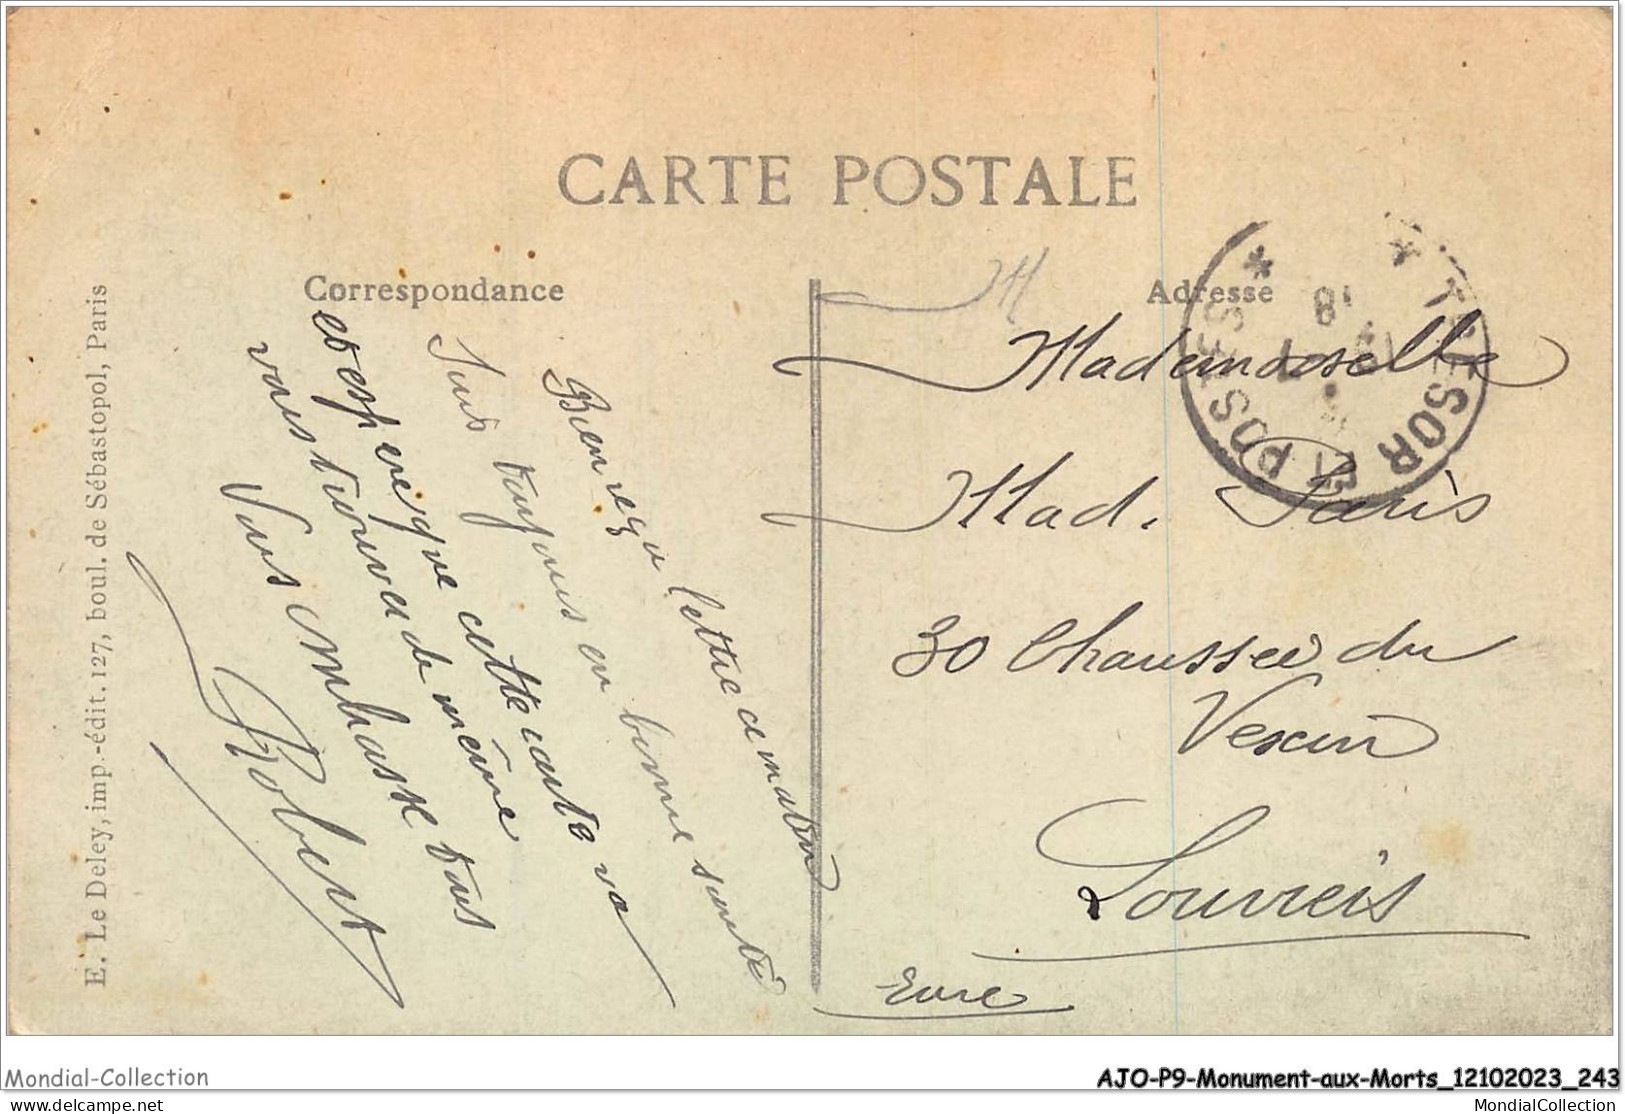 CARTE POSTALE
Correspondance
Adresse
E. Le Deley, imp.-édit. 127, boul. de Sébastopol, Paris
Bien reçu lettre ce matin
Suis toujours en bonne santé
et espere que cette carte va
vous trouver de même
Vous embrasse tous
Robert
TRESOR ET POSTES
18
Mademoiselle
Mad. Paris
30 Chaussée du
Vexin
Louviers
Eure
Mondial-Collection
AJO-P9-Monument-aux-Morts_12102023_243
www.delcampe.net
MondialCollection